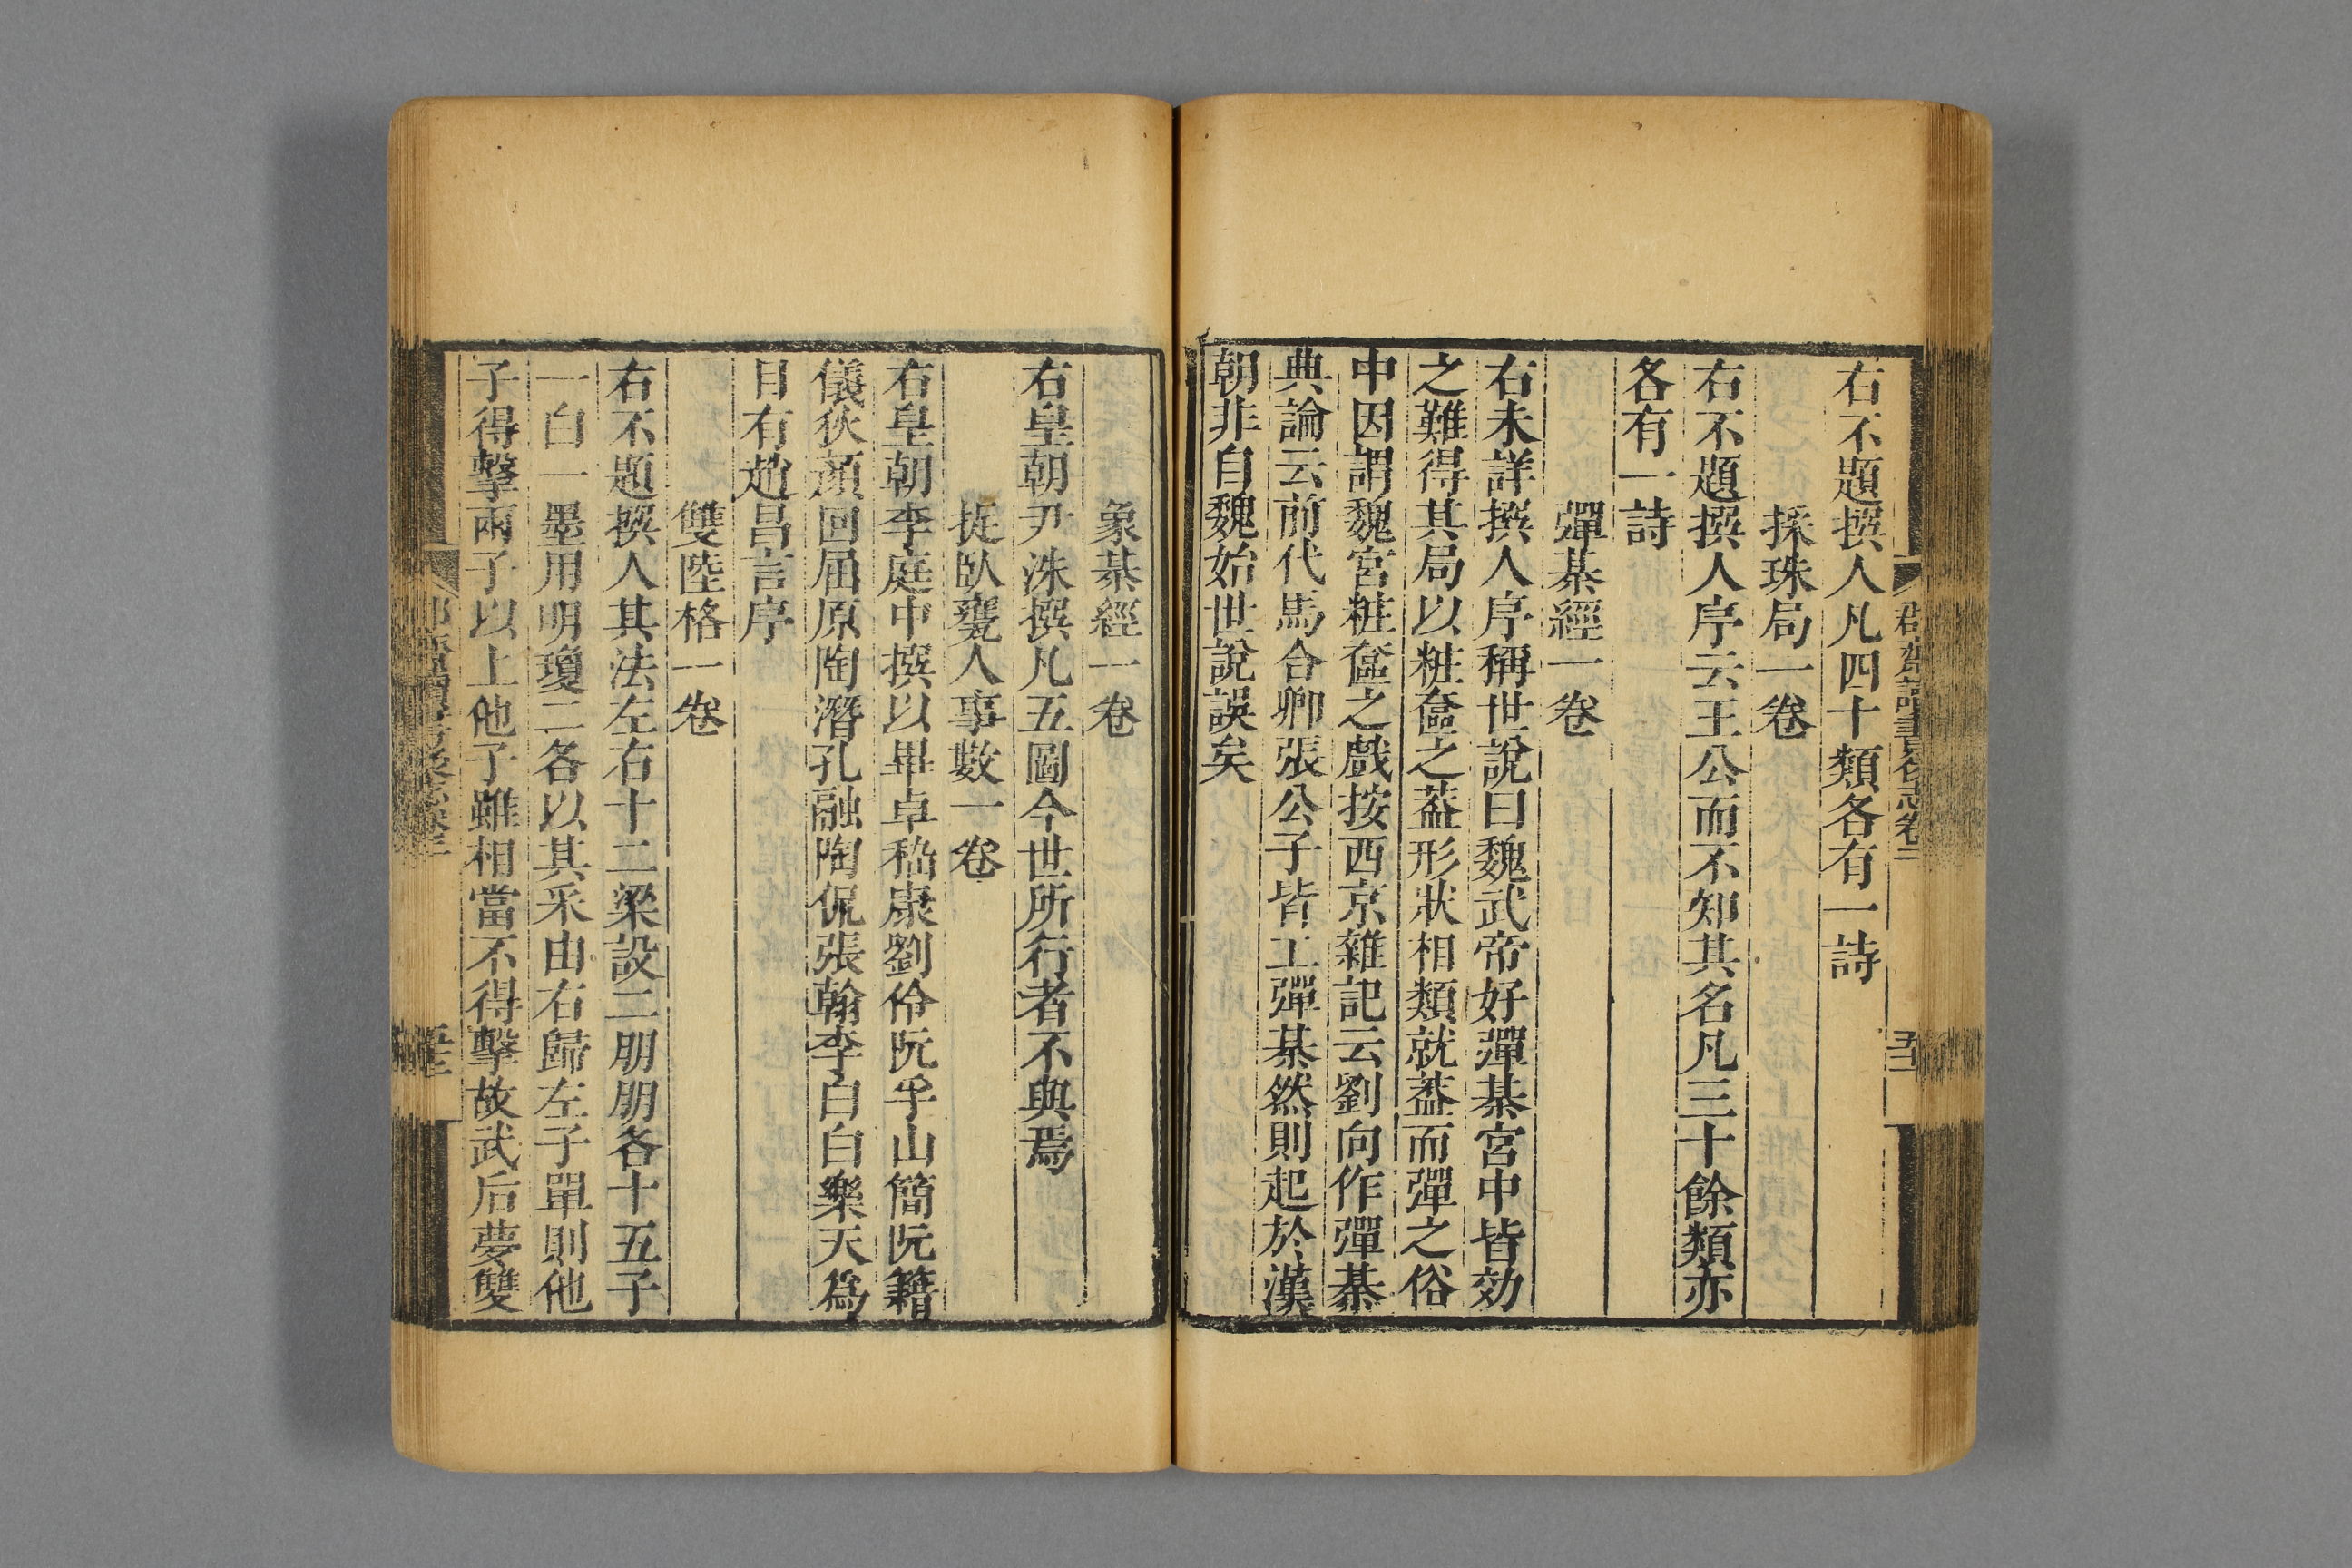 右不題撰人凡四十類各有一詩
採珠局一卷
右不題撰人序云王公而不知其名凡三十餘類亦
各有一詩
彈棊經一卷
右未詳撰人序稱世說曰魏武帝好彈棊宮中皆効
之難得其局以粧奩之葢形狀相類就葢而彈之俗
中因謂魏宮粧奩之戲按西京雜記云劉向作彈棊
典論云前代馬合卿張公子皆工彈棊然則起於漢
朝非自魏始世說誤矣
象棊經一卷
右皇朝尹洙撰凡五圖今世所行者不與焉
捉臥甕人事數一卷
右皇朝李庭中撰以畢卓嵇康劉伶阮孚山簡阮籍
儀狄顏回屈原陶潛孔融陶侃張翰李白白樂天為
目有趙昌言序
雙陸格一卷
右不題撰人其法左右十二梁設二朋朋各十五子
一白一墨用明瓊二各以其采由右歸左子單則他
子得擊兩子以上他子雖相當不得擊故武后夢雙